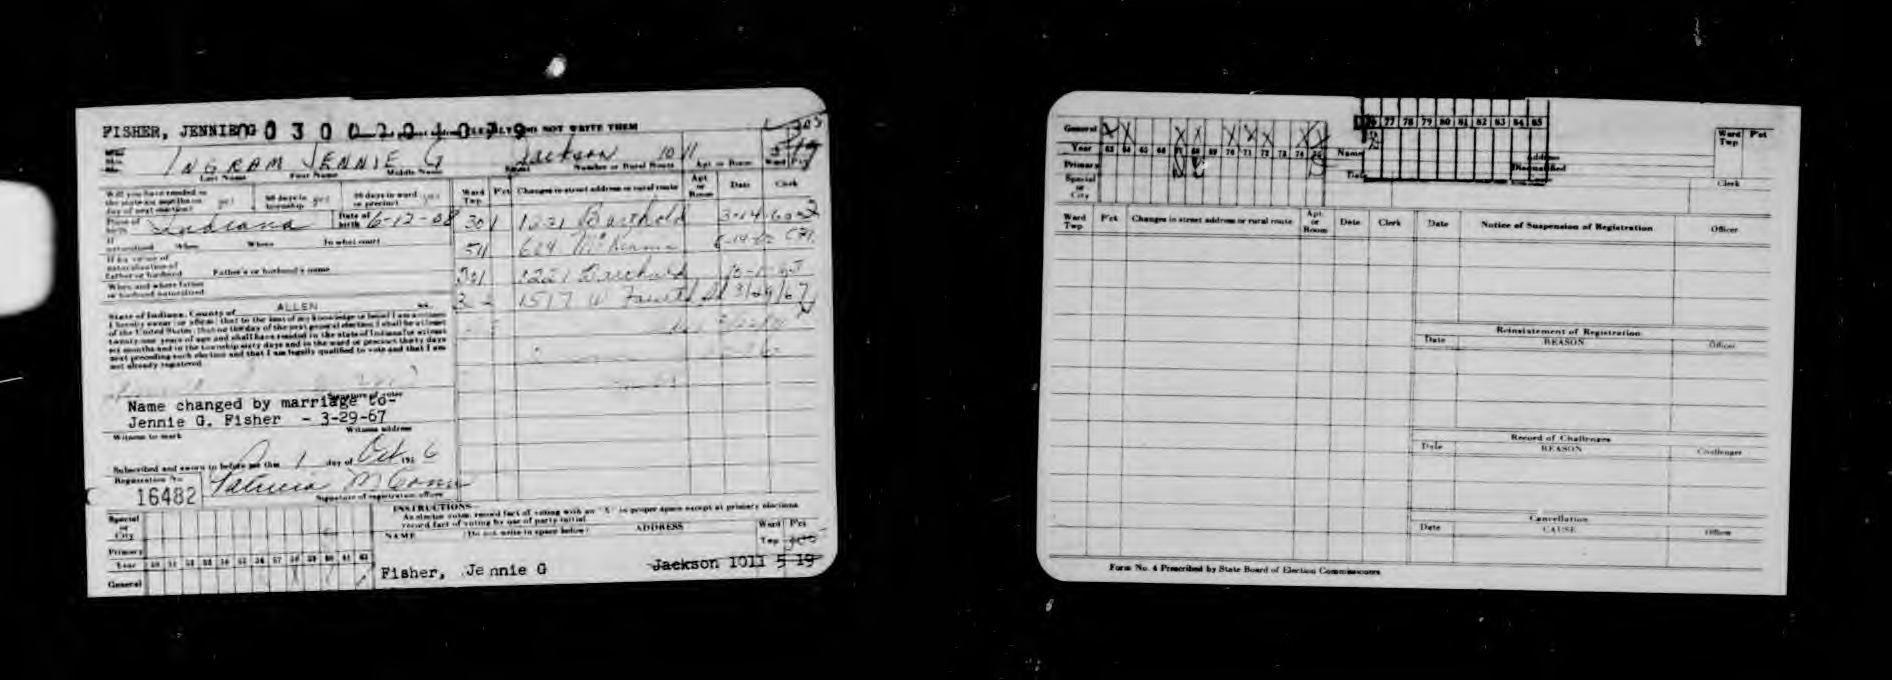 FISHER, JENNIE G 0300201079 DO NOT WRITE THEM
INGRAM JENNIE G Jackson 1011
Last Name First Name Middle Name Street Number or Rural Route Apt. or Room Ward P'ct
Will you have resided in the state six months on day of next election? yes 60 days in township yes 30 days in ward or precinct yes
Ward Twp P'ct Changes in street address or rural route Apt. or Room Date Clerk
Place of birth Indiana Date of birth 6-12-08
301 1221 Barthold 3-14-60
If naturalized When Where In what court
511 624 McKinnie
If by virtue of naturalization of father or husband Father's or husband's name
301 1221 Barthold
When and where father or husband naturalized
1517 W Fourth 3/29/67
State of Indiana, County of ALLEN ss.
I hereby swear (or affirm) that to the best of my knowledge or belief I am a citizen
of the United States; that on the day of the next general election I shall be at least
twenty-one years of age and shall have resided in the state of Indiana for at least
six months and in the township sixty days and in the ward or precinct thirty days
next preceding such election and that I am legally qualified to vote and that I am
not already registered.
Signature of voter
Name changed by marriage to-
Jennie G. Fisher - 3-29-67
Witness to mark Witness address
Subscribed and sworn to before me this 1 day of Oct 195 6
Registration No. 16482 Patricia
Signature of registration officer
INSTRUCTIONS
As elector votes, record fact of voting with an "X" in proper space except at primary elections
record fact of voting by use of party initial.
Special or City
NAME (Do not write in space below) ADDRESS Ward Twp P'ct
Primary
Year 50 51 52 53 54 55 56 57 58 59 60 61 62
General
Fisher, Jennie G Jackson 1011 5 19
General X X X X X X
Year 63 64 65 66 67 68 69 70 71 72 73 74 75
Primary
Special or City
76 77 78 79 80 81 82 83 84 85
Name Address
Date Disqualified
Ward Twp P'ct
Clerk
Ward Twp P'ct Changes in street address or rural route Apt. or Room Date Clerk Date Notice of Suspension of Registration Officer
Reinstatement of Registration
Date REASON Officer
Record of Challenges
Date REASON Challenger
Cancellation
Date CAUSE Officer
Form No. 4 Prescribed by State Board of Election Commissioners